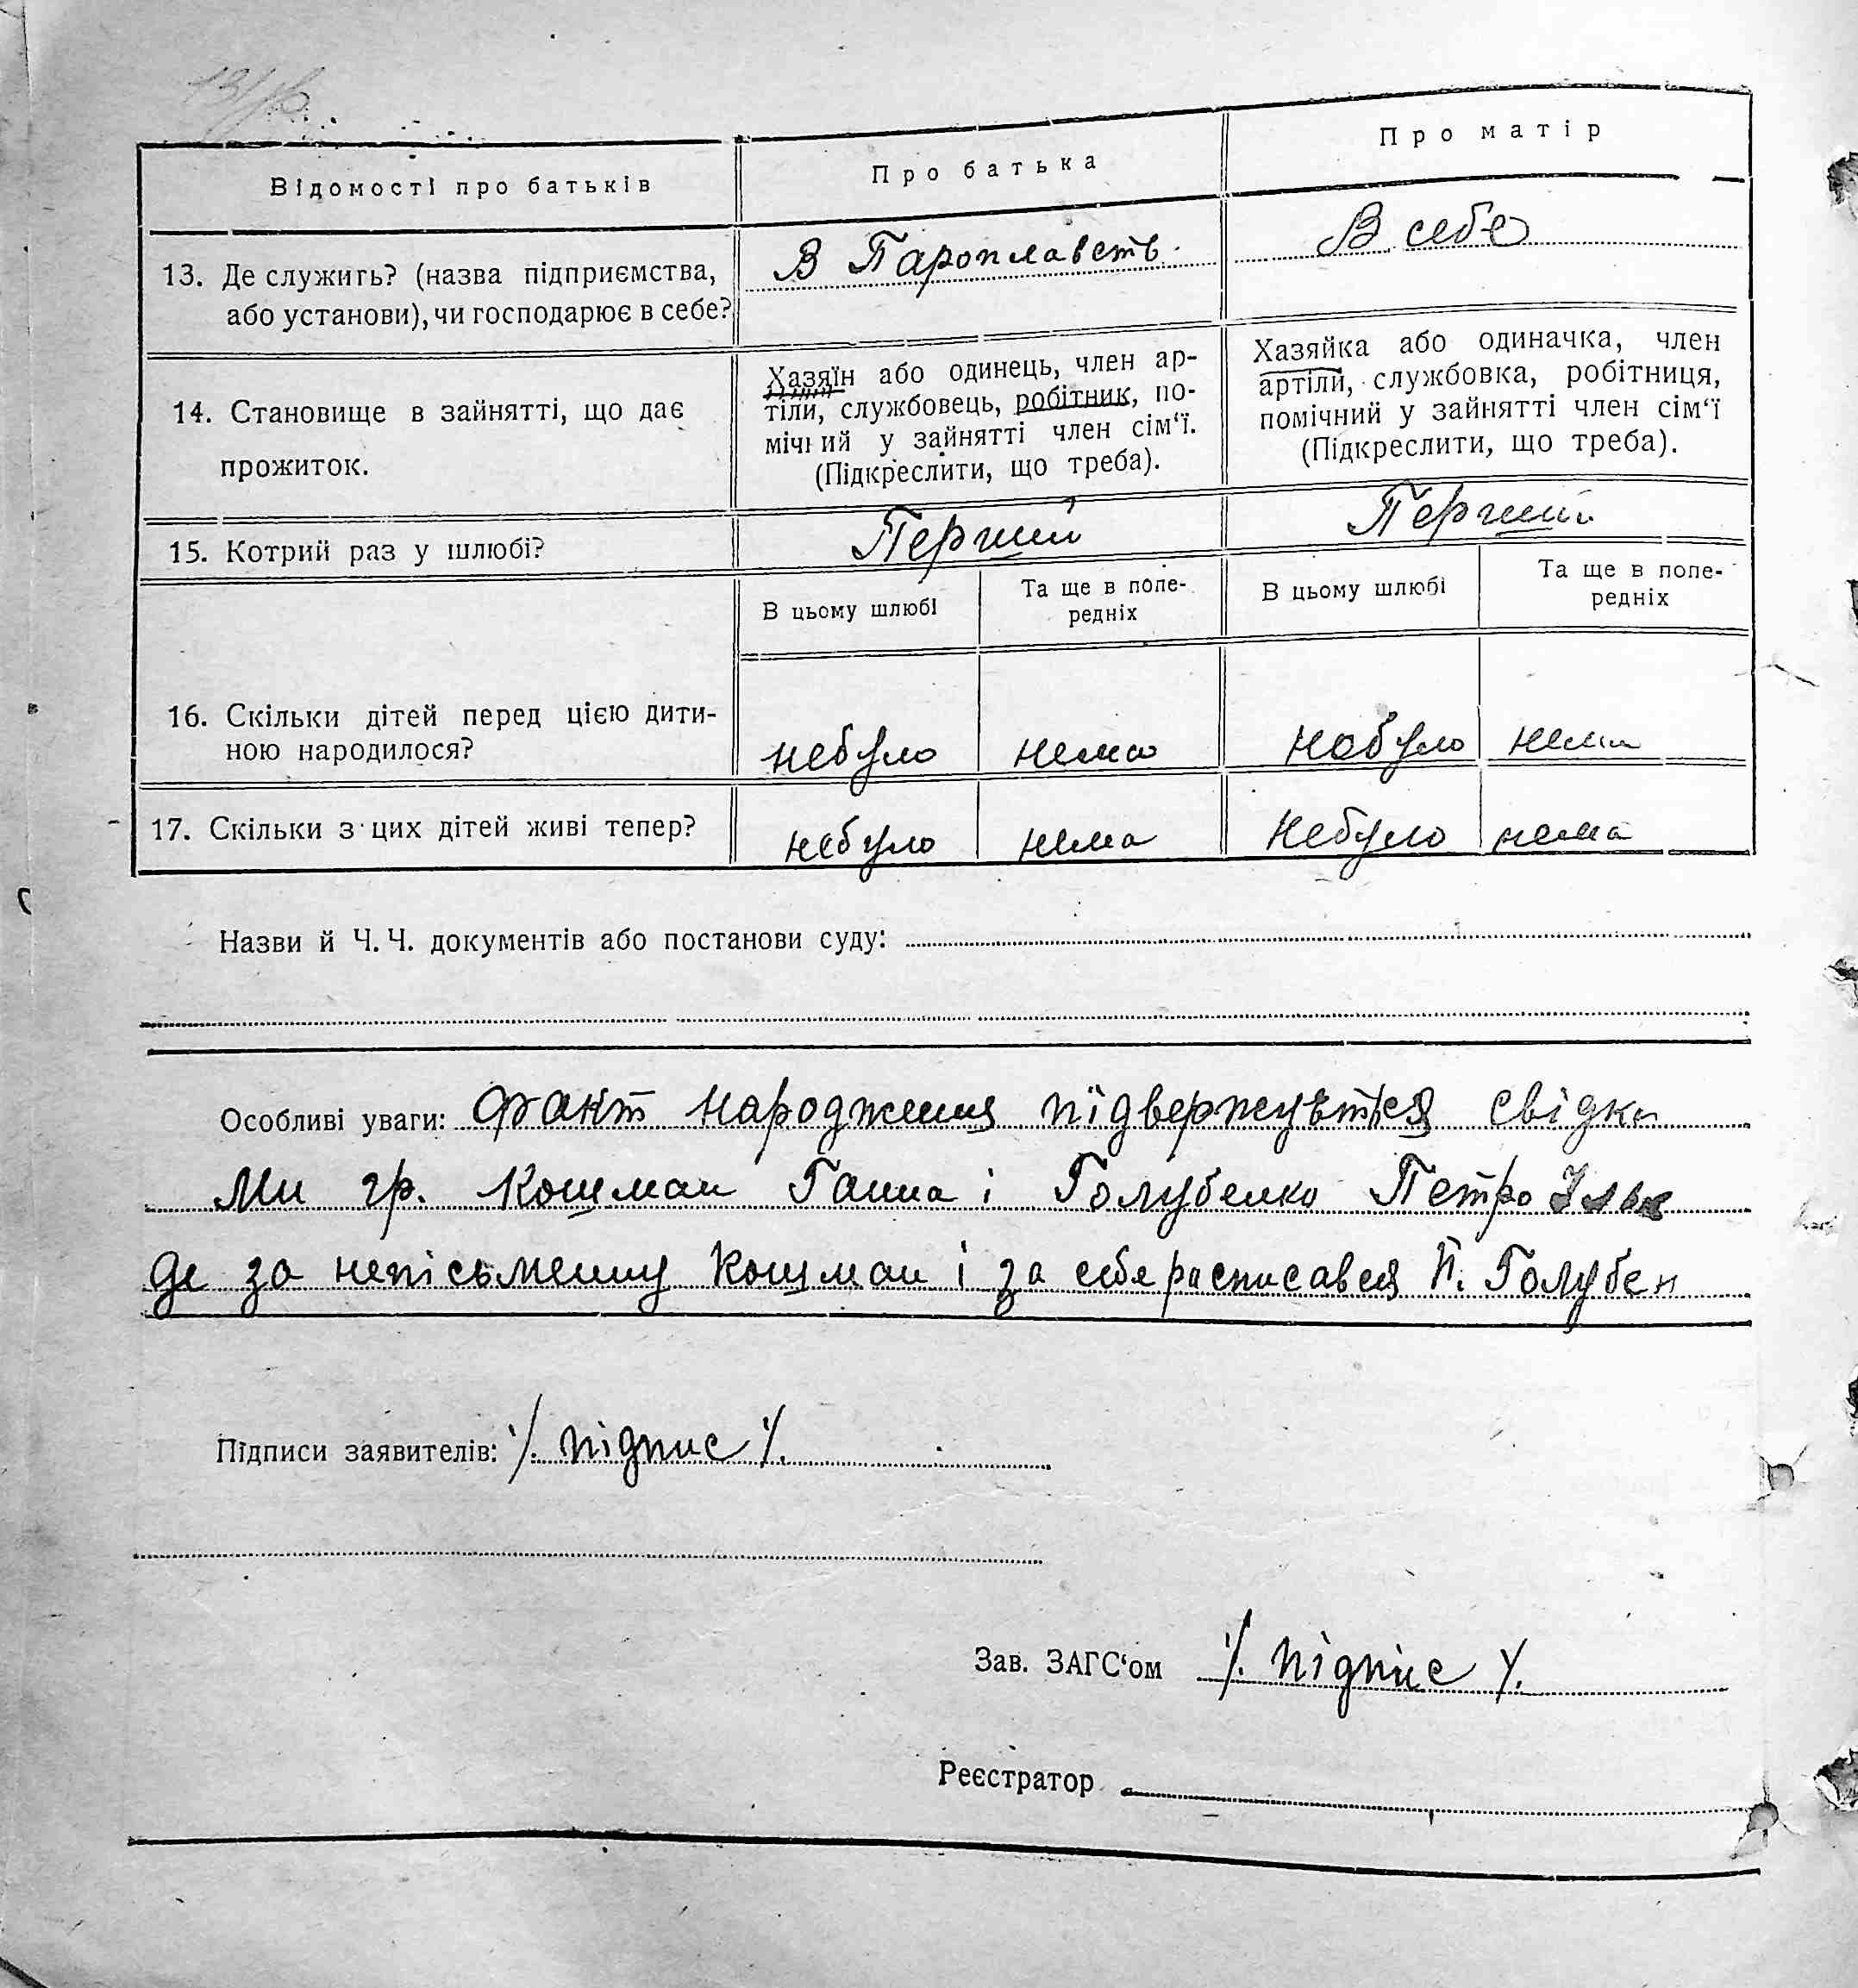 Відомості про батьків
Про батька
Про матір
13. Де служить? (назва підприємства,
або установи), чи господарює в себе?
В Пароплавств.
В себе
14. Становище в зайнятті, що дає
прожиток.
Хазяїн або одинець, член ар-
тіли, службовець, робітник, по-
мічний у зайнятті член сім‘ї.
(Підкреслити, що треба).
Хазяйка або одиначка, член
артіли, службовка, робітниця,
помічний у зайнятті член сім‘ї
(Підкреслити, що треба).
15. Котрий раз у шлюбі?
Перший
Перший
В цьому шлюбі
Та ще в попе-
редніх
В цьому шлюбі
Та ще в попе-
редніх
16. Скільки дітей перед цією дити-
ною народилося?
небуло
нема
небуло
нема
17. Скільки з цих дітей живі тепер?
небуло
нема
Небуло
нема
Назви й Ч. Ч. документів або постанови суду:
Особливі уваги: Факт народження підвержується свідка
ми гр. Кошман Ганна і Голубенко Петро
де за непісьменну Кошман і за себе расписався П. Голубен
Підписи заявителів: /. підпис /.
Зав. ЗАГС‘ом /. підпис /.
Реєстратор